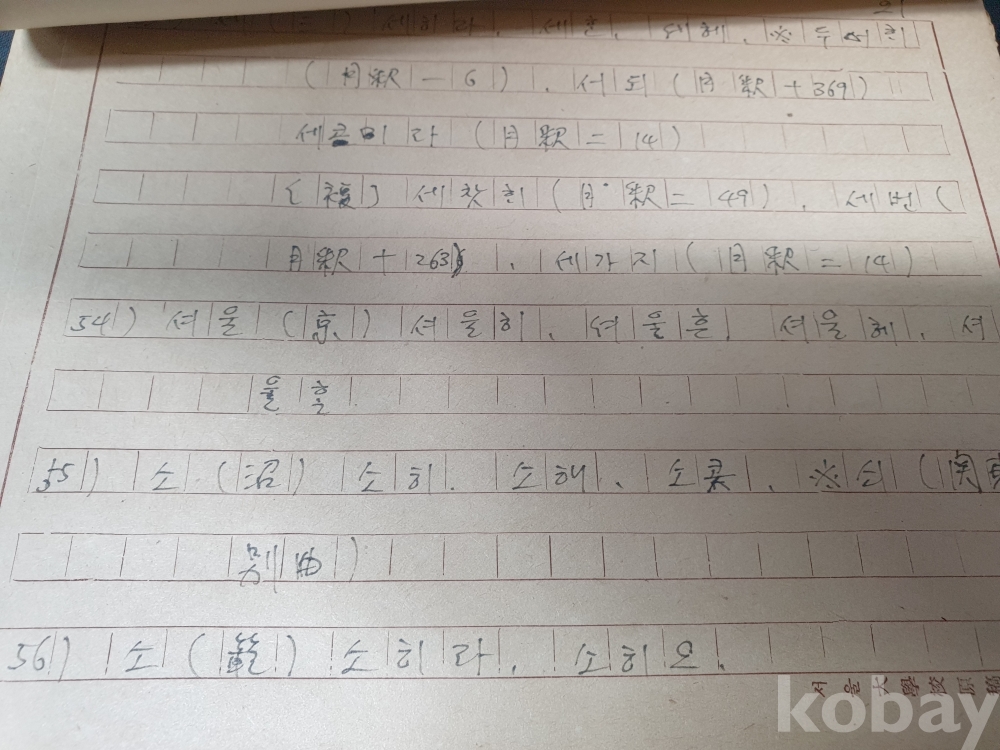 (三) 세히라. 세흔. 세헤. ※ 두세흔
(月釈一 6). 서되 (月釈十 369)
세콤이라 (月釈二 14)
〔複〕 세찻히 (月釈二 49). 세번 (
月釈十 263). 세가지 (月釈二 14)
54) 셔울 (京) 셔울히. 셔울흔. 셔울헤. 셔
울흘
55) 소 (沼) 소히. 소해. 소콪. ※ 쇠 (関東
別曲)
56) 소 () 소히라. 소히오.
서울大學校原稿
kobay